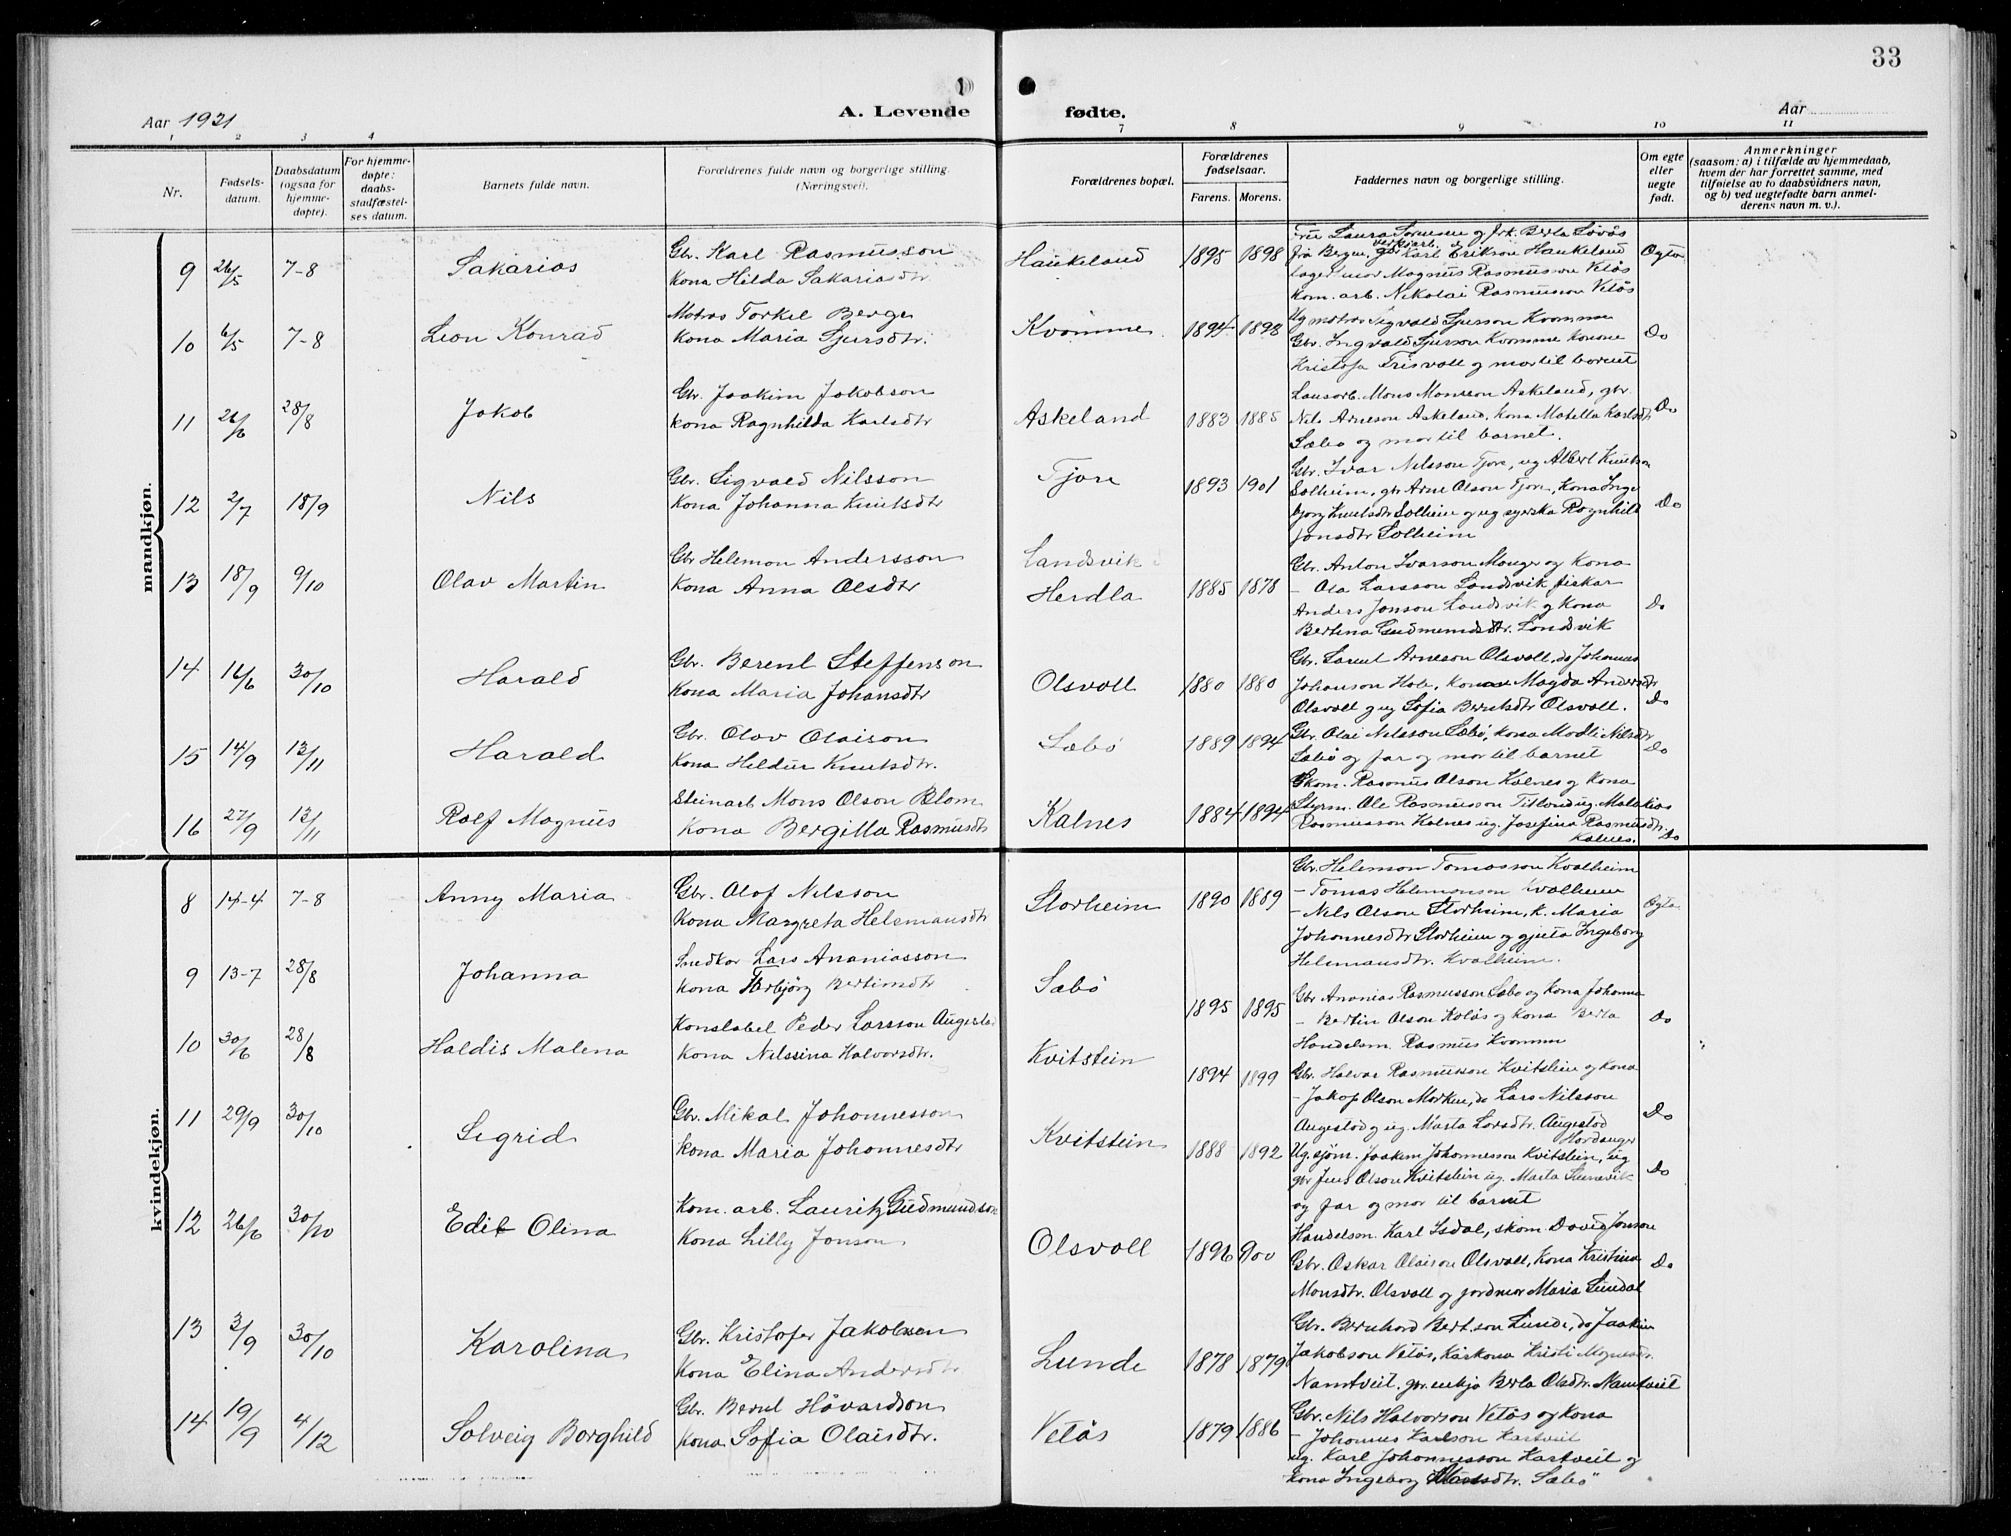 33
Aar 1921
A. Levende fødte.
Aar
1 2 3 4 7 8 9 10 11
Nr.
Fødsels-
datum.
Daabsdatum
(ogsaa for
hjemme-
døpte).
For hjemme-
døpte:
daabs-
stadfæstel-
ses datum.
Barnets fulde navn.
Forældrenes fulde navn og borgerlige stilling.
(Næringsvei).
Forældrenes bopæl.
Forældrenes
fødselsaar.
Farens. Morens.
Faddernes navn og borgerlige stilling.
Om egte
eller
uegte
født.
Anmerkninger
(saasom: a) i tilfælde av hjemmedaab,
hvem der har forrettet samme, med
tilføielse av to daabsvidners navn,
og b) ved uegtefødte barn anmel-
derens navn m. v.).
mandkjøn.
9 26/5 7-8 Sakarias
Gbr. Karl Rasmusson
Kona Hilda Sakariasdtr.
Haukeland 1895 1898
Fru Laura Sørensen og frk. Berta Løvås
fra Bergen, gbr Karl Erikson Haukeland
Magnus Rasmusson Vetås
Kom. arb. Nikolai Rasmusson Vetås
Ogta
10 6/5 7-8 Leon Konrad
Matros Torkel Berge
Kona Maria Sjursdtr.
Kvamme 1894 1898
Ug matros Sigvald Sjurson Kvamme
Gbr. Ingvald Sjurson Kvamme konone
Kristofa Frisvoll og mor til barnet
Do
11 26/6 28/8 Jakob
Gbr. Joakim Jakobson
kona Ragnhilda Karlsdtr
Askeland 1883 1885
Lausarb. Mons Monsson Askeland, gbr.
Nils Arneson Askeland, kona Matella Karlsdtr
Sæbø og mor til barnet.
Do
12 2/7 18/9 Nils
Gbr. Sigvald Nilsson
Kona Johanna Knutsdtr
Tjore 1893 1901
Gbr. Ivar Nilsson Tjore, ug Albert Knutson
Solheim, gbr Arne Olson Tjore, Kona Inge
bjørg Knutsdtr Solheim og ug syerska Ragnhild
Jonsdtr Solheim
Do
13 18/9 9/10 Olav Martin
Gbr Helemon Andersson
Kona Anna Olsdtr
Landsvik
Herdla 1885 1878
Gbr. Anton Ivarson Manger og Kona
- Ola Larsson Landsvik fiskar
Anders Jonson Landsvik og Kona
Bertina Gudmundsdtr. Landsvik
Do
14 16/6 30/10 Harald
Gbr. Berent Steffenson
Kona Maria Johansdtr
Olsvoll 1880 1880
Gbr. Larent Arneson Olsvoll, do Johannes
Johanson Hole, Kona Magda Andersdtr
Olsvoll og ug Sofia Berntsdtr Olsvoll.
Do
15 14/9 13/11 Harald
Gbr. Olav Olaison
Kona Hildur Knutsdtr.
Sæbø 1889 1894
Gbr. Olai Nilsson Sæbø, kona Modli Nilsdtr
Sæbø og far og mor til barnet
Do
16 27/9 13/11 Rolf Magnus
Steinarb Mons Olson Blom
Kona Bergitta Rasmusdtr
Kalnes 1884 1894
Skom. Rasmus Olson Kalnes og Kona
Styrm. Ole Rasmusson Titland ug. Malakias
Rasmusson Kalnes ug. Josefina Rasmusdtr.
Kalnes.
Do
kvindekjøn.
8 14-4 7-8 Anny Maria
Gbr. Olof Nilsson
Kona Margreta Helemansdtr
Storheim 1890 1889
Gbr. Helemon Tomasson Kvalheim
- Tomas Helemonson Kvalheim
- Nils Olson Storheim, k. Maria
Johannesdtr Storheim og gjeta Ingeborg
Helemansdtr. Kvalheim.
Ogta
9 13-7 28/8 Johanna
Snedkar Lars Ananiasson
Kona Torbjørg Bertinsdtr
Sæbø 1895 1895
Gbr Ananias Rasmusson Sæbø og Kona Johanna
- Bertin Olson Kolås og Kona Berta
Handelsm. Rasmus Kvamme
Do
10 30/6 28/8 Haldis Malena
Konstabel Peder Larsson Augestad
Kona Nilssina Halvorsdtr.
Kvitstein 1894 1899
Gbr. Halvar Rasmusson Kvitstein og Kona
- Jakop Olson Marken, do Lars Nilsson
Augestad og ug. Marta Larsdtr. Augestad
Hordanger
Do
11 29/9 30/10 Sigrid
Gbr. Mikal Johannesson
kona Maria Johannesdtr
Kvitstein 1888 1892
Ug. sjøm. Joakim Johannesson Kvitstein, ug
gbr Jens Olson Kvitstein ug. Marta
og far og mor til barnet
Do
12 26/6 30/10 Edit Olina
Kom. arb. Lauritz Gudmundson
Kona Lilly Jonson
Olsvoll 1896 900
Handelsm. Karl Isdal, skom. David Jonson
Gbr. Oskar Olaison Olsvoll, Kona Kristina
Monsdtr. Olsvoll og jordmor Maria Sundal
Do
13 3/9 30/10 Karolina
Gbr. Kristofer Jakobsen
Kona Elina Andersdtr
Lunde 1878 1879
Gbr. Bernhard Bertson Lunde, do Joakim
Jakobson Vetås, Kårkona Kristi Mognesdtr.
Namtveit. gbr. enkja Berta Olsdtr. Namtveit
14 19/9 4/12 Solveig Borghild
Gbr. Bernt Håvardson
Kona Sofia Olaisdtr.
Vetås 1879 1886
Gbr. Nils Halvorson Vetås og Kona
- Johannes Karlson Kartveit
ug. Karl Johannesson Kartveit og
Kona Ingeborg Sæbø